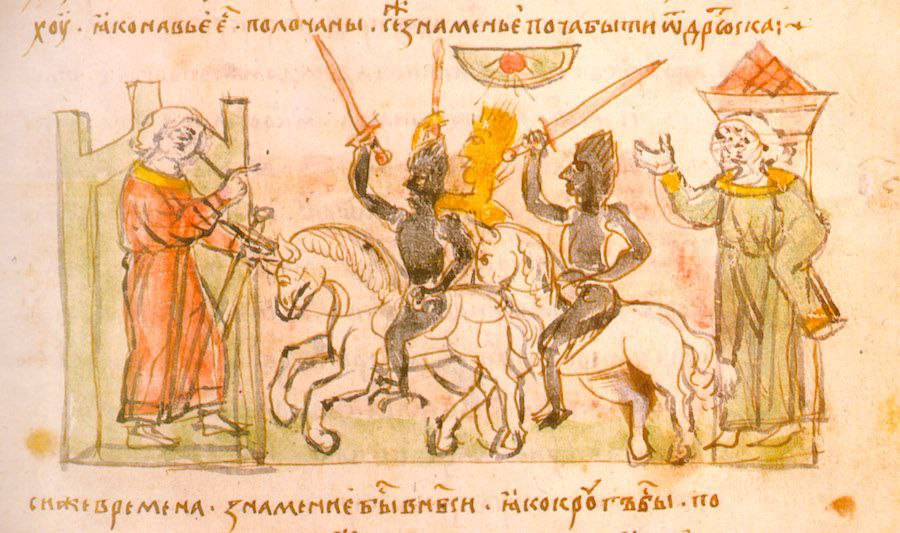 хоу · ꙗко навьє єⷭ҇ · полочаны · сеⷤ знаменьє поча быти ѿ дрѿска ·
сиже времена · знамениє быⷭ҇ в нб҃си · ꙗко кроугъ бы · по